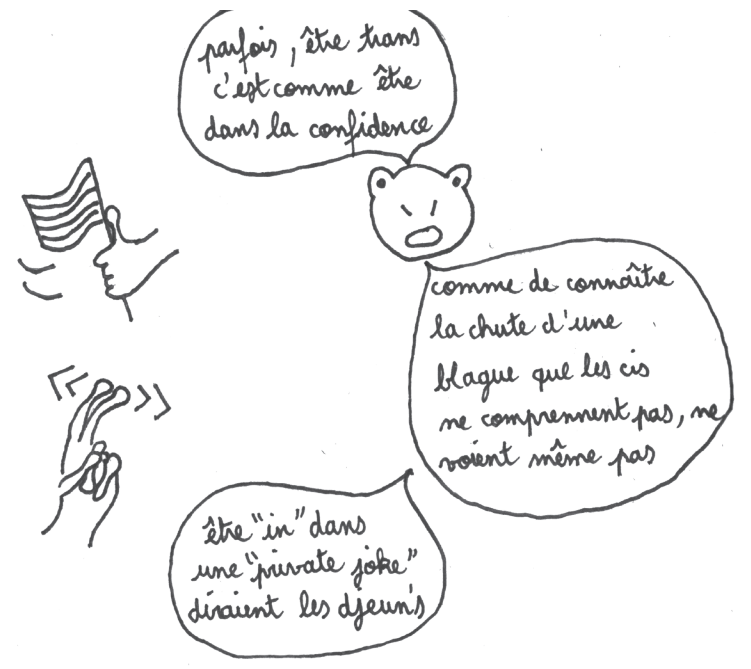 parfois, être trans
c'est comme être
dans la confidence
comme de connaître
la chute d'une
blague que les cis
ne comprennent pas, ne
voient même pas
<< >>
être "in" dans
une "private joke"
diraient les djeun's